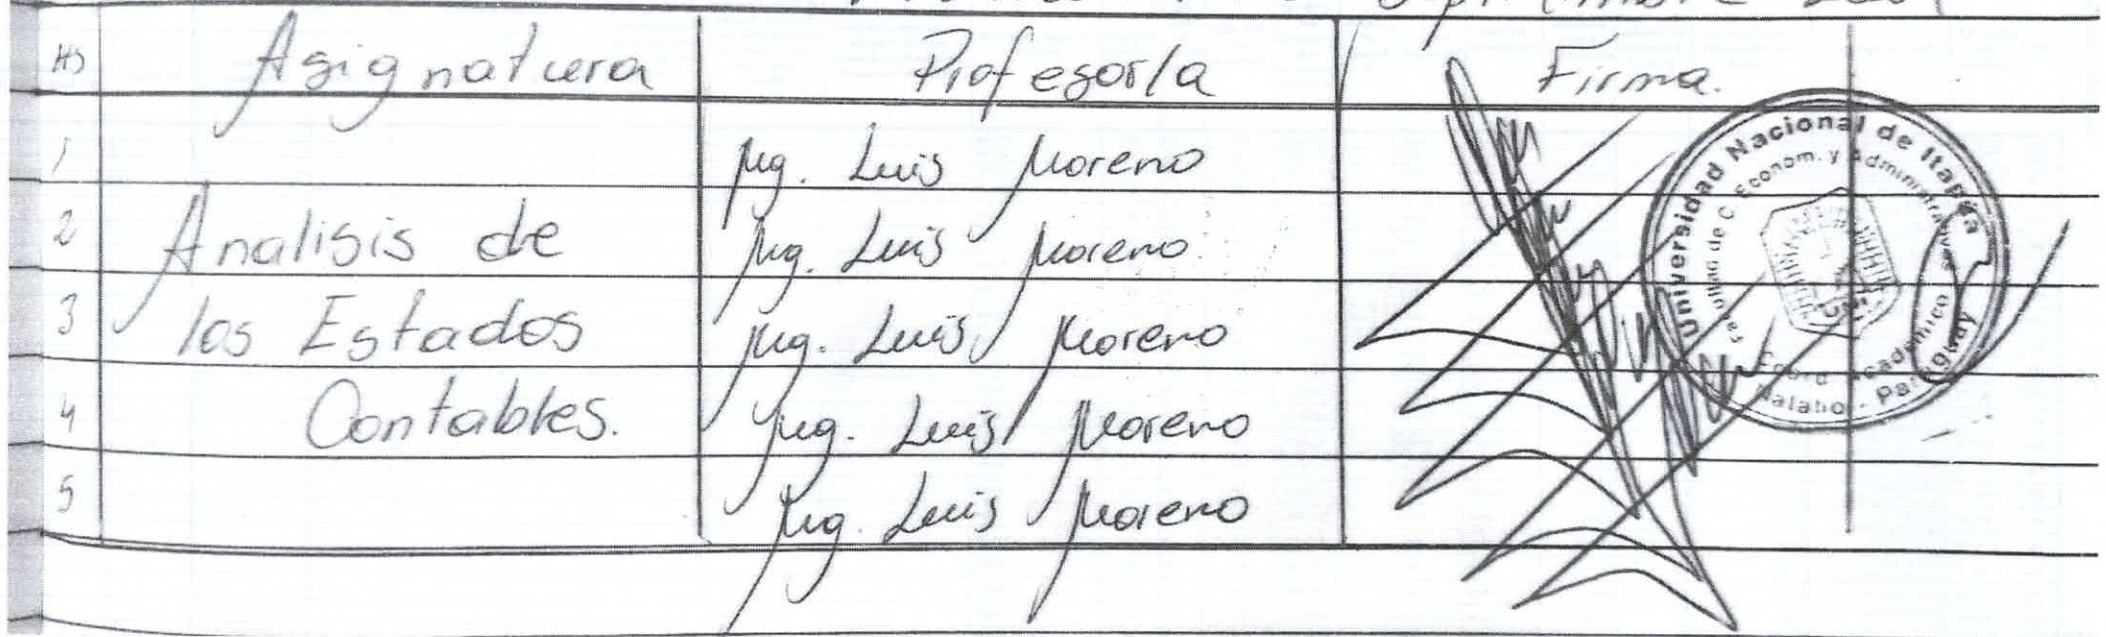 Septiembre
Hs Asignatura Profesor/a Firma.
1 Mg. Luis Moreno
2 Analisis de Mg. Luis Moreno
3 los Estados Mg. Luis Moreno
4 Contables. Mg. Luis Moreno
5 Mg. Luis Moreno
Universidad Nacional de Itapúa
Facultad de C. Econom. y Administrativas
Coord. Académico
Natalio - Paraguay